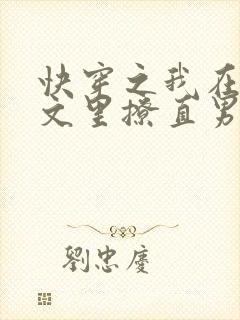 快穿之我在
文里撩直男
劉忠慶